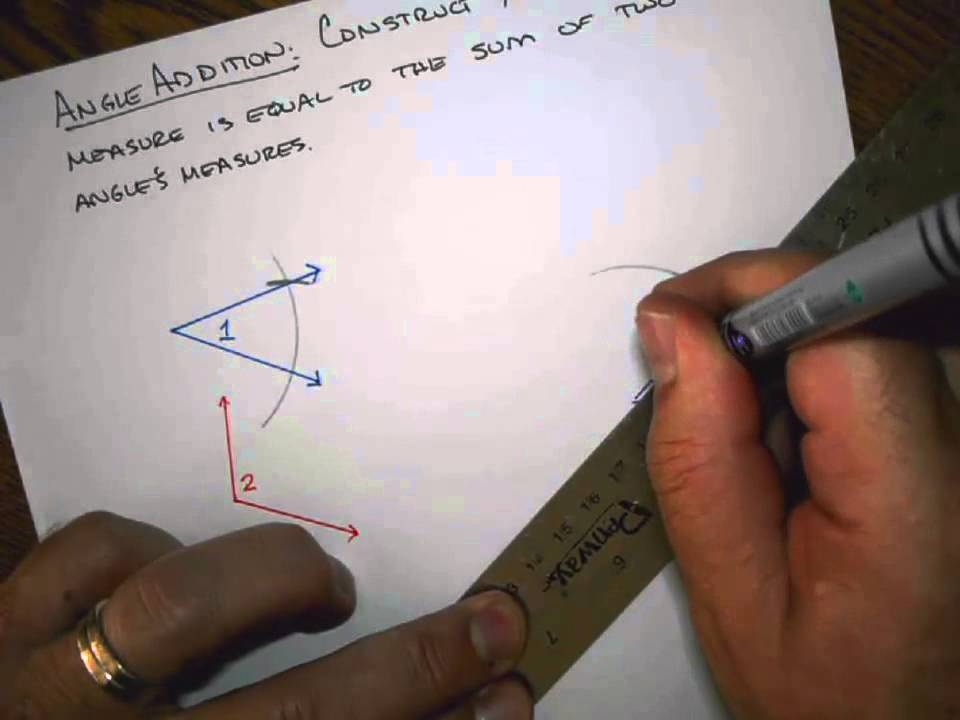 ANGLE ADDITION: CONSTRUCT
MEASURE IS EQUAL TO THE SUM OF TWO
ANGLE'S MEASURES.
1
2
17
16
15
14
6
7
25